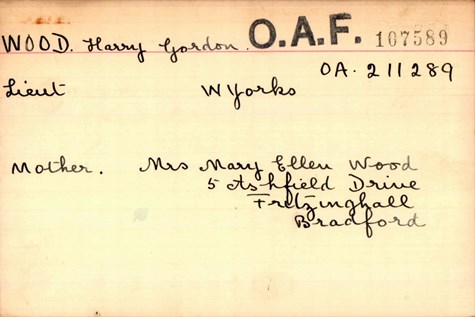 WOOD. Harry Gordon. O.A.F. 107589
OA. 211289
Lieut W Yorks
Mother. Mrs Mary Ellen Wood
5 Ashfield Drive
Frizinghall
Bradford